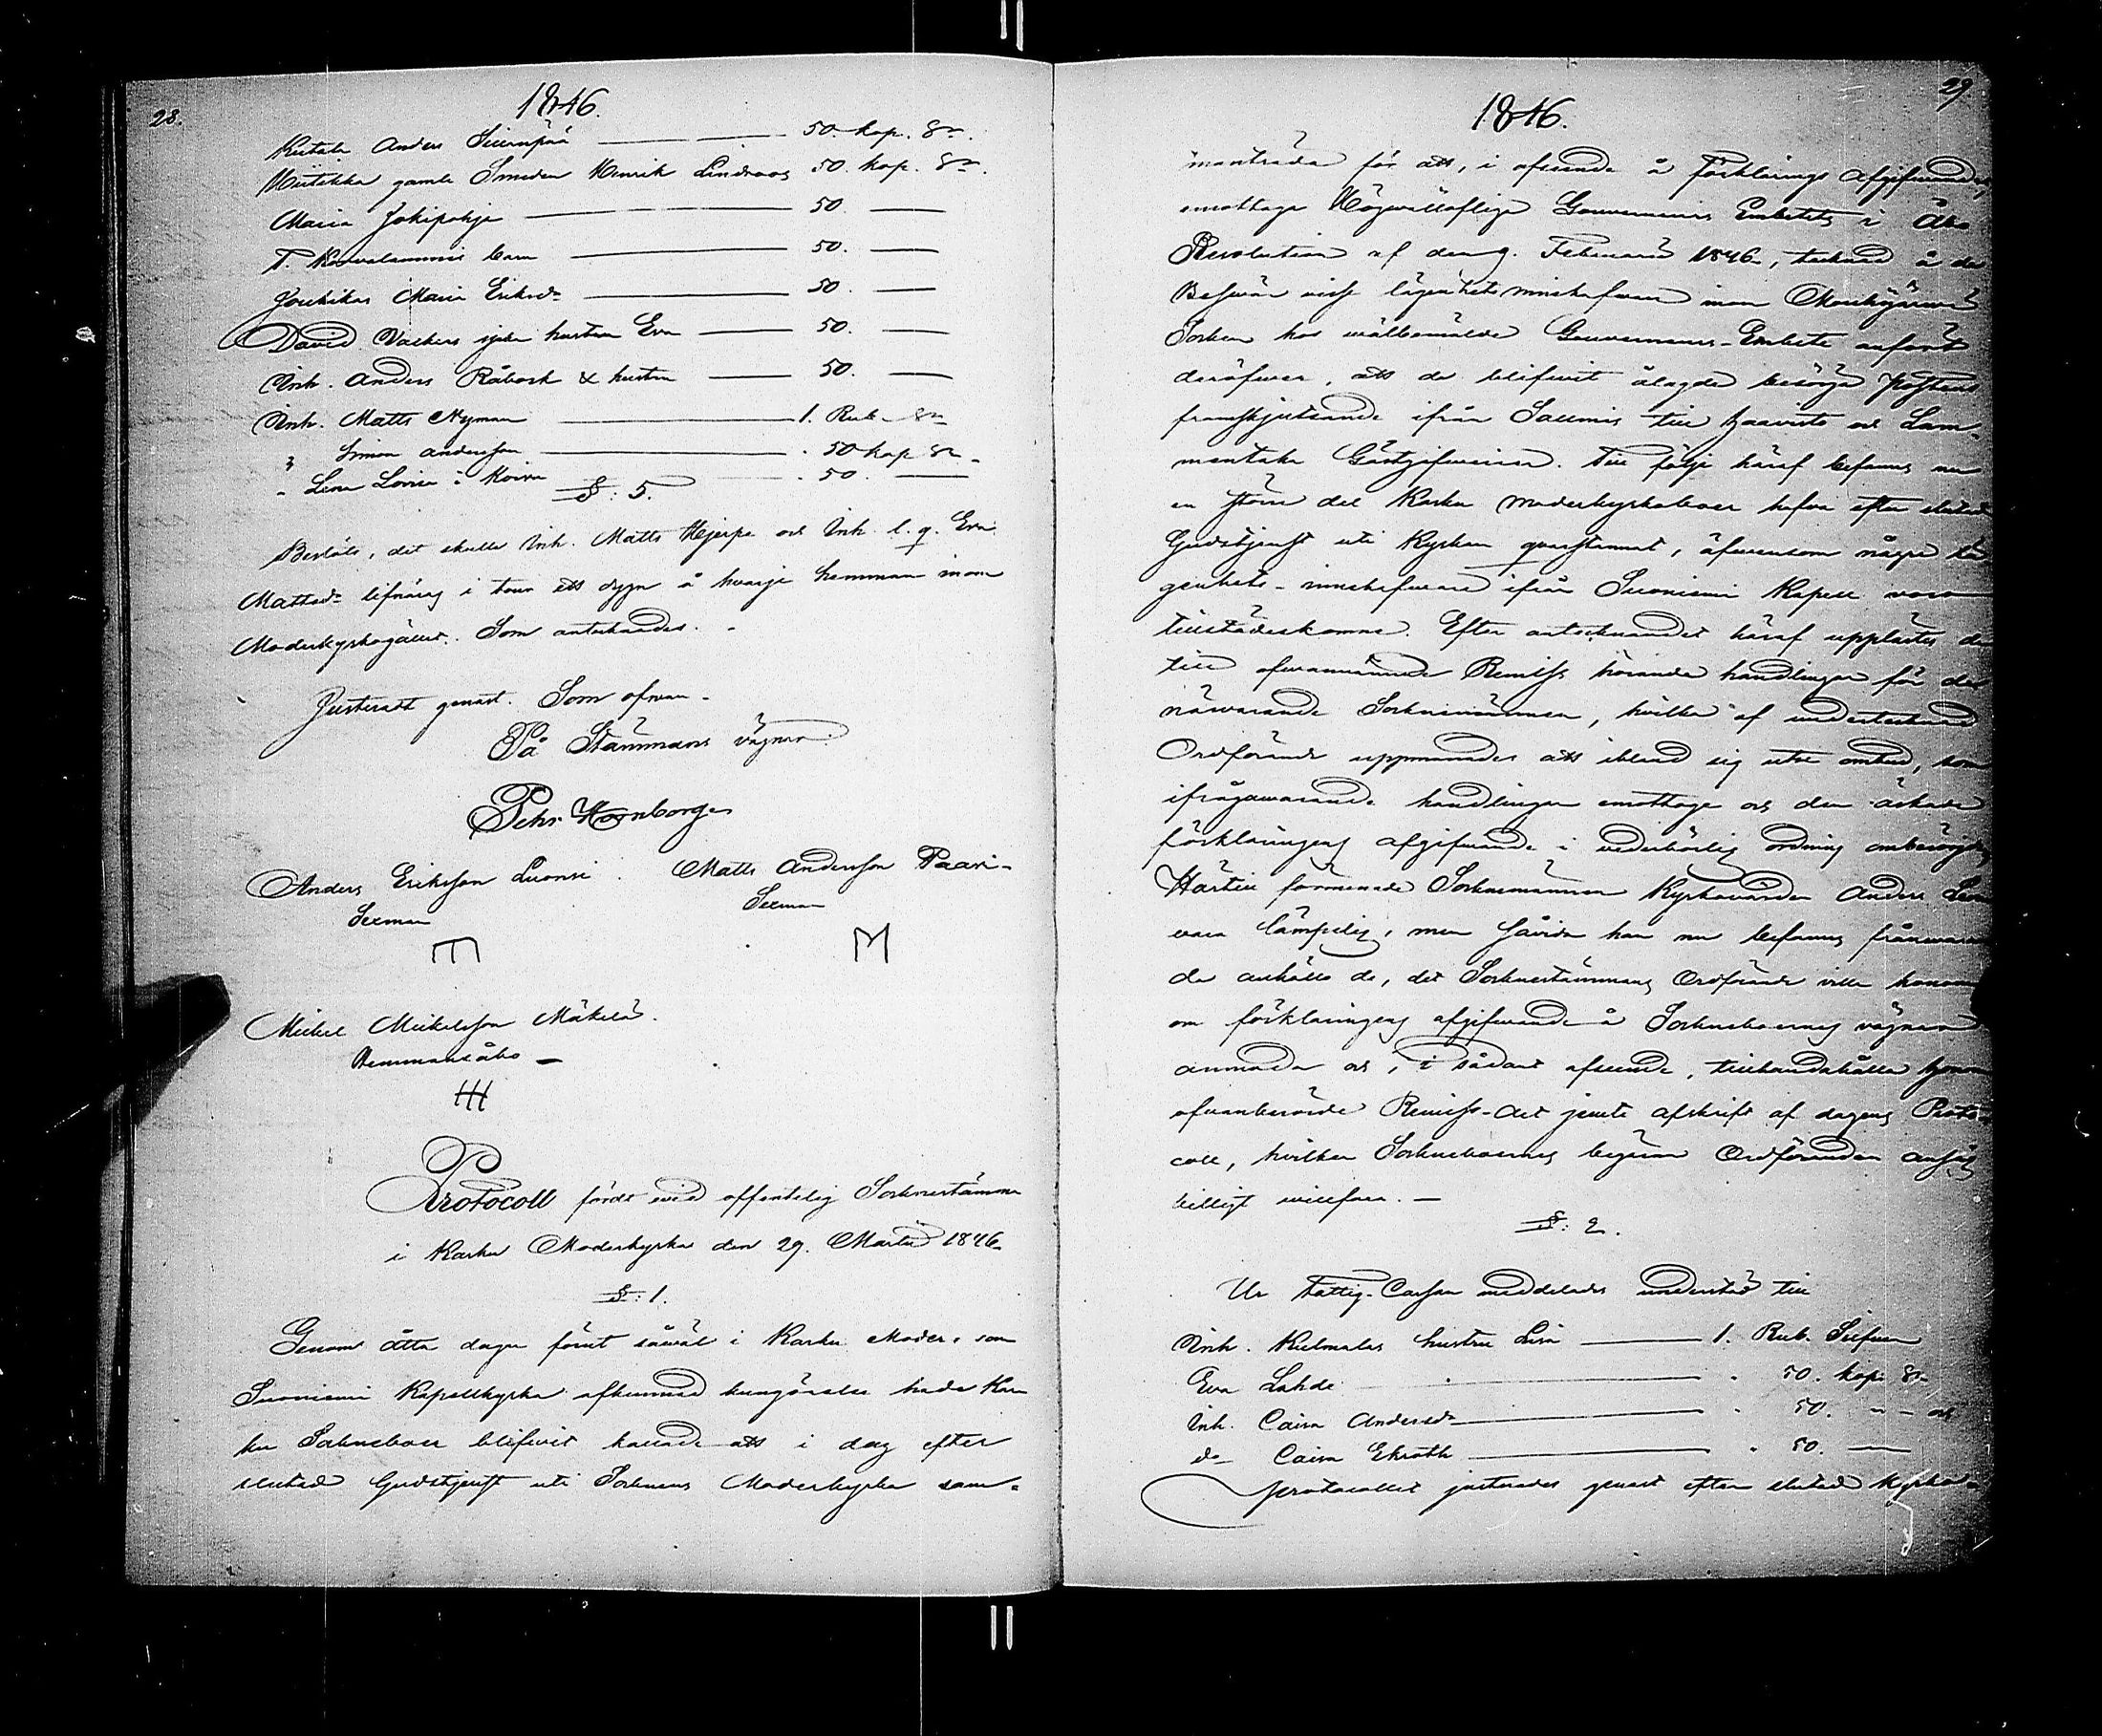 28.
1846.
Anders 50 kop. Sr.
gamla Smeden Henrik Lindroos 50. kop. Sr.
Maria Jokipohja 50
T. barn 50.
Maria Eriksdr 50.
David sjuka hustru Eva 50.
Inh. Anders Råbock & hustru 50.
Inh. Matts Nyman 1. Rub. Sr
" Simon Andersson 50 kop Sr.
" Lena Lovisa i 50.
§: 5.
Beslöts, det skulle Inh. Matts Hjerpe och Inh. E. q. Eva
Mattsdr lifnäras i tour ett dygn å hvarje hemman inom
Moderkyrkogället. Som antecknades.
Justeradt genast. Som ofvan.
På Stämmans vägnar
Pehr Hornborg
Anders Eriksson Luonsi. Matts Andersson Paavi-
Sexman Sexman
Michel Mickelsson Mäkelä.
Hemmansåbo
Protocoll fördt wid offentelig Sockenstämma
i Karku Moderkyrka den 29. Martii 1846.
§: 1.
Genom åtta dagar förut såwäl i Karku Moder- som
Suoniemi Kapellkyrka afkunnad kungörelse hade Kar-
ku Sockneboer blifwit kallade att i dag efter
slutad Gudstjenst uti Socknens Moderkyrka sam-
29
1846.
manträda för att, i afseende å förklarings afgifwande,
emottaga Högwällofliga Gouvernements Embetets i Åbo
Resolution af den 9. Februarii 1846, tecknad å de
Beswär wisse lägenhets innehafware inom Mouhijärwi
Socken hos wälbemälde Gouvernements-Embete anfört
deröfwer, att de blifwit ålagde besörja postens
framskjutsande ifrån till Haavisto och Lam-
mentaka Gästgifwerier. Till följe häraf befanns nu
en större del Karku Moderkyrkoboer hafva efter slutad
Gudstjenst uti Kyrkan qvarstannat, äfwensom någre lä-
genhets-innehafware ifrån Suoniemi Kapell voro
tillstädeskomne. Efter antecknandet häraf upplästes de
till ofvannämnde Remiss hörande handlingar för de
närwarande Socknemännen, hvilka af undertecknad
Ordförande uppmanades att ibland sig utse ombud, som
ifrågawarande handlingar emottaga och den äskade
förklaringens afgifwande i wederbörlig ordning ombesörja.
Härtill förmenade Socknemännen Kyrkovärden Anders
vara lämpelig, men såvida han nu befanns frånwaran-
de anhöllo de, det Socknestämmans Ordförande ville honom
om förklaringens afgifwande å Sockneboernes vägnar
anmoda och, i sådant afseende, tillhandahålla honom
ofvanberörde Remiss-Act jemte afskrift af dagens Proto-
coll, hvilken Sockneboernes begäran Ordföranden ansåg
billigt willfara. —
§: 2.
Ur Fattig-Cassan meddelades understöd till
Inh. hustru Lisa 1. Rub. Silfwer
Eva Lahde 50. kop. Sr.
Inh. Caisa Andersdr 50. och
do Caisa Ekroth 50.
Protocollet justerades genast efter slutad Kyrko-